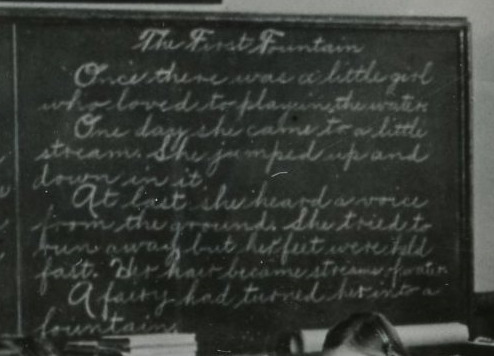 The First Fountain
Once there was a little girl
who loved to play in the water.
One day she came to a little
stream. She jumped up and
down in it.
At last she heard a voice
from the ground. She tried to
run away but her feet were held
fast. Her hair became streams of water
A fairy had turned her into a
fountain.